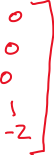 0
0
0
1
-2